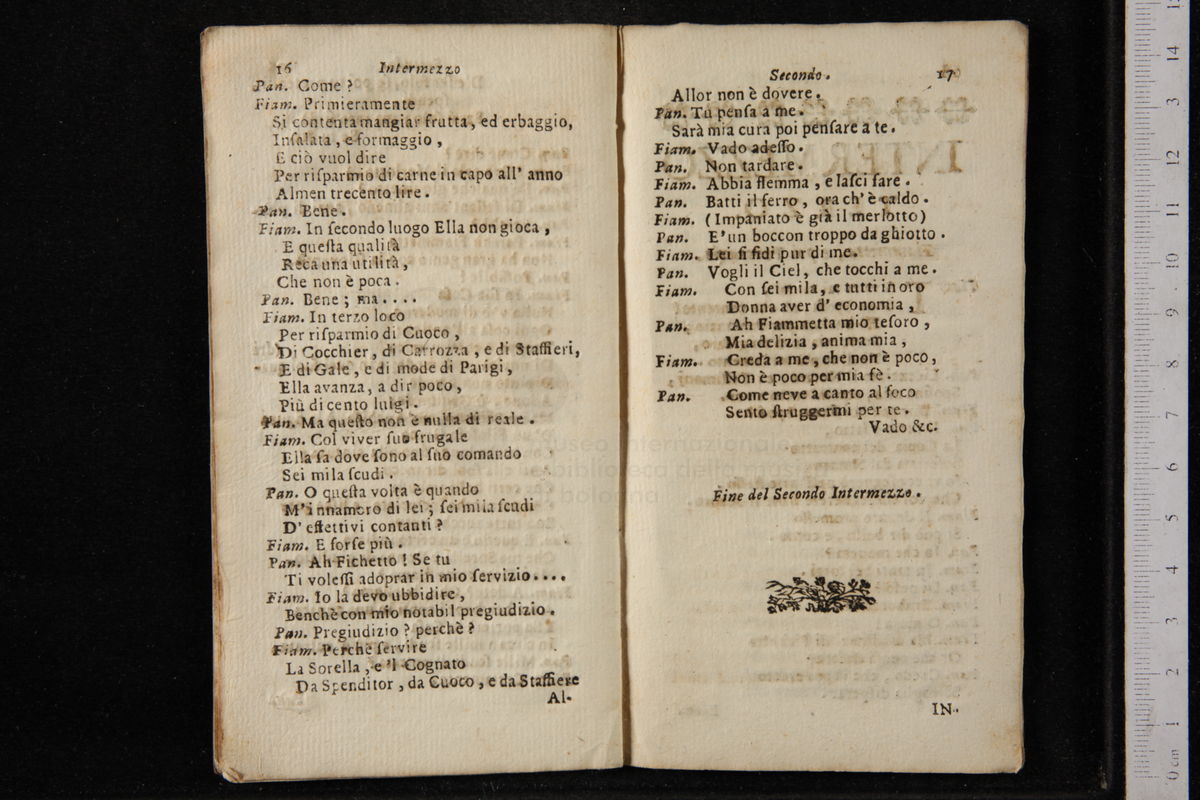 16 Intermezzo
Pan. Come ?
Fiam. Primieramente
Si contenta mangiar frutta, ed erbaggio,
Inſalata, e formaggio,
E ciò vuol dire
Per riſparmio di carne in capo all' anno
Almen trecento lire.
Pan. Bene.
Fiam. In ſecondo luogo Ella non gioca,
E queſta qualità
Reca una utilità,
Che non è poca.
Pan. Bene; ma....
Fiam. In terzo loco
Per riſparmio di Cuoco,
Di Cocchier, di Carrozza, e di Staffieri,
E di Gale, e di mode di Parigi,
Ella avanza, a dir poco,
Più di cento luigi.
Pan. Ma queſto non è nulla di reale.
Fiam. Col viver ſuo frugale
Ella fa dove ſono al ſuo comando
Sei mila ſcudi.
Pan. O queſta volta è quando
M'innamoro di lei; ſei mila ſcudi
D' effettivi contanti?
Fiam. E forſe più.
Pan. Ah Fichetto! Se tu
Ti voleſſi adoprar in mio ſervizio....
Fiam. Io la devo ubbidire,
Benchè con mio notabil pregiudizio.
Pan. Pregiudizio? perchè?
Fiam. Perchè ſervire
La Sorella, e 'l Cognato
Da Spenditor, da Cuoco, e da Staffiere
Al-
Secondo. 17
Allor non è dovere.
Pan. Tu penſa a me.
Sarà mia cura poi penſare a te.
Fiam. Vado adeſſo.
Pan. Non tardare.
Fiam. Abbia flemma, e laſci fare.
Pan. Batti il ferro, ora ch' è caldo.
Fiam. (Impaniato è già il merlotto)
Pan. E' un boccon troppo da ghiotto.
Fiam. Lei ſi fidi pur di me.
Pan. Vogli il Ciel, che tocchi a me.
Fiam. Con ſei mila, e tutti in oro
Donna aver d' economia,
Pan. Ah Fiammetta mio teſoro,
Mia delizia, anima mia,
Fiam. Creda a me, che non è poco,
Non è poco per mia fè.
Pan. Come neve a canto al foco
Sento ſtruggermi per te.
Vado &c.
Fine del Secondo Intermezzo.
IN-
museo internazionale
e biblioteca della musica
bologna
14
13
12
11
10
9
8
7
6
5
4
3
2
1
0 cm